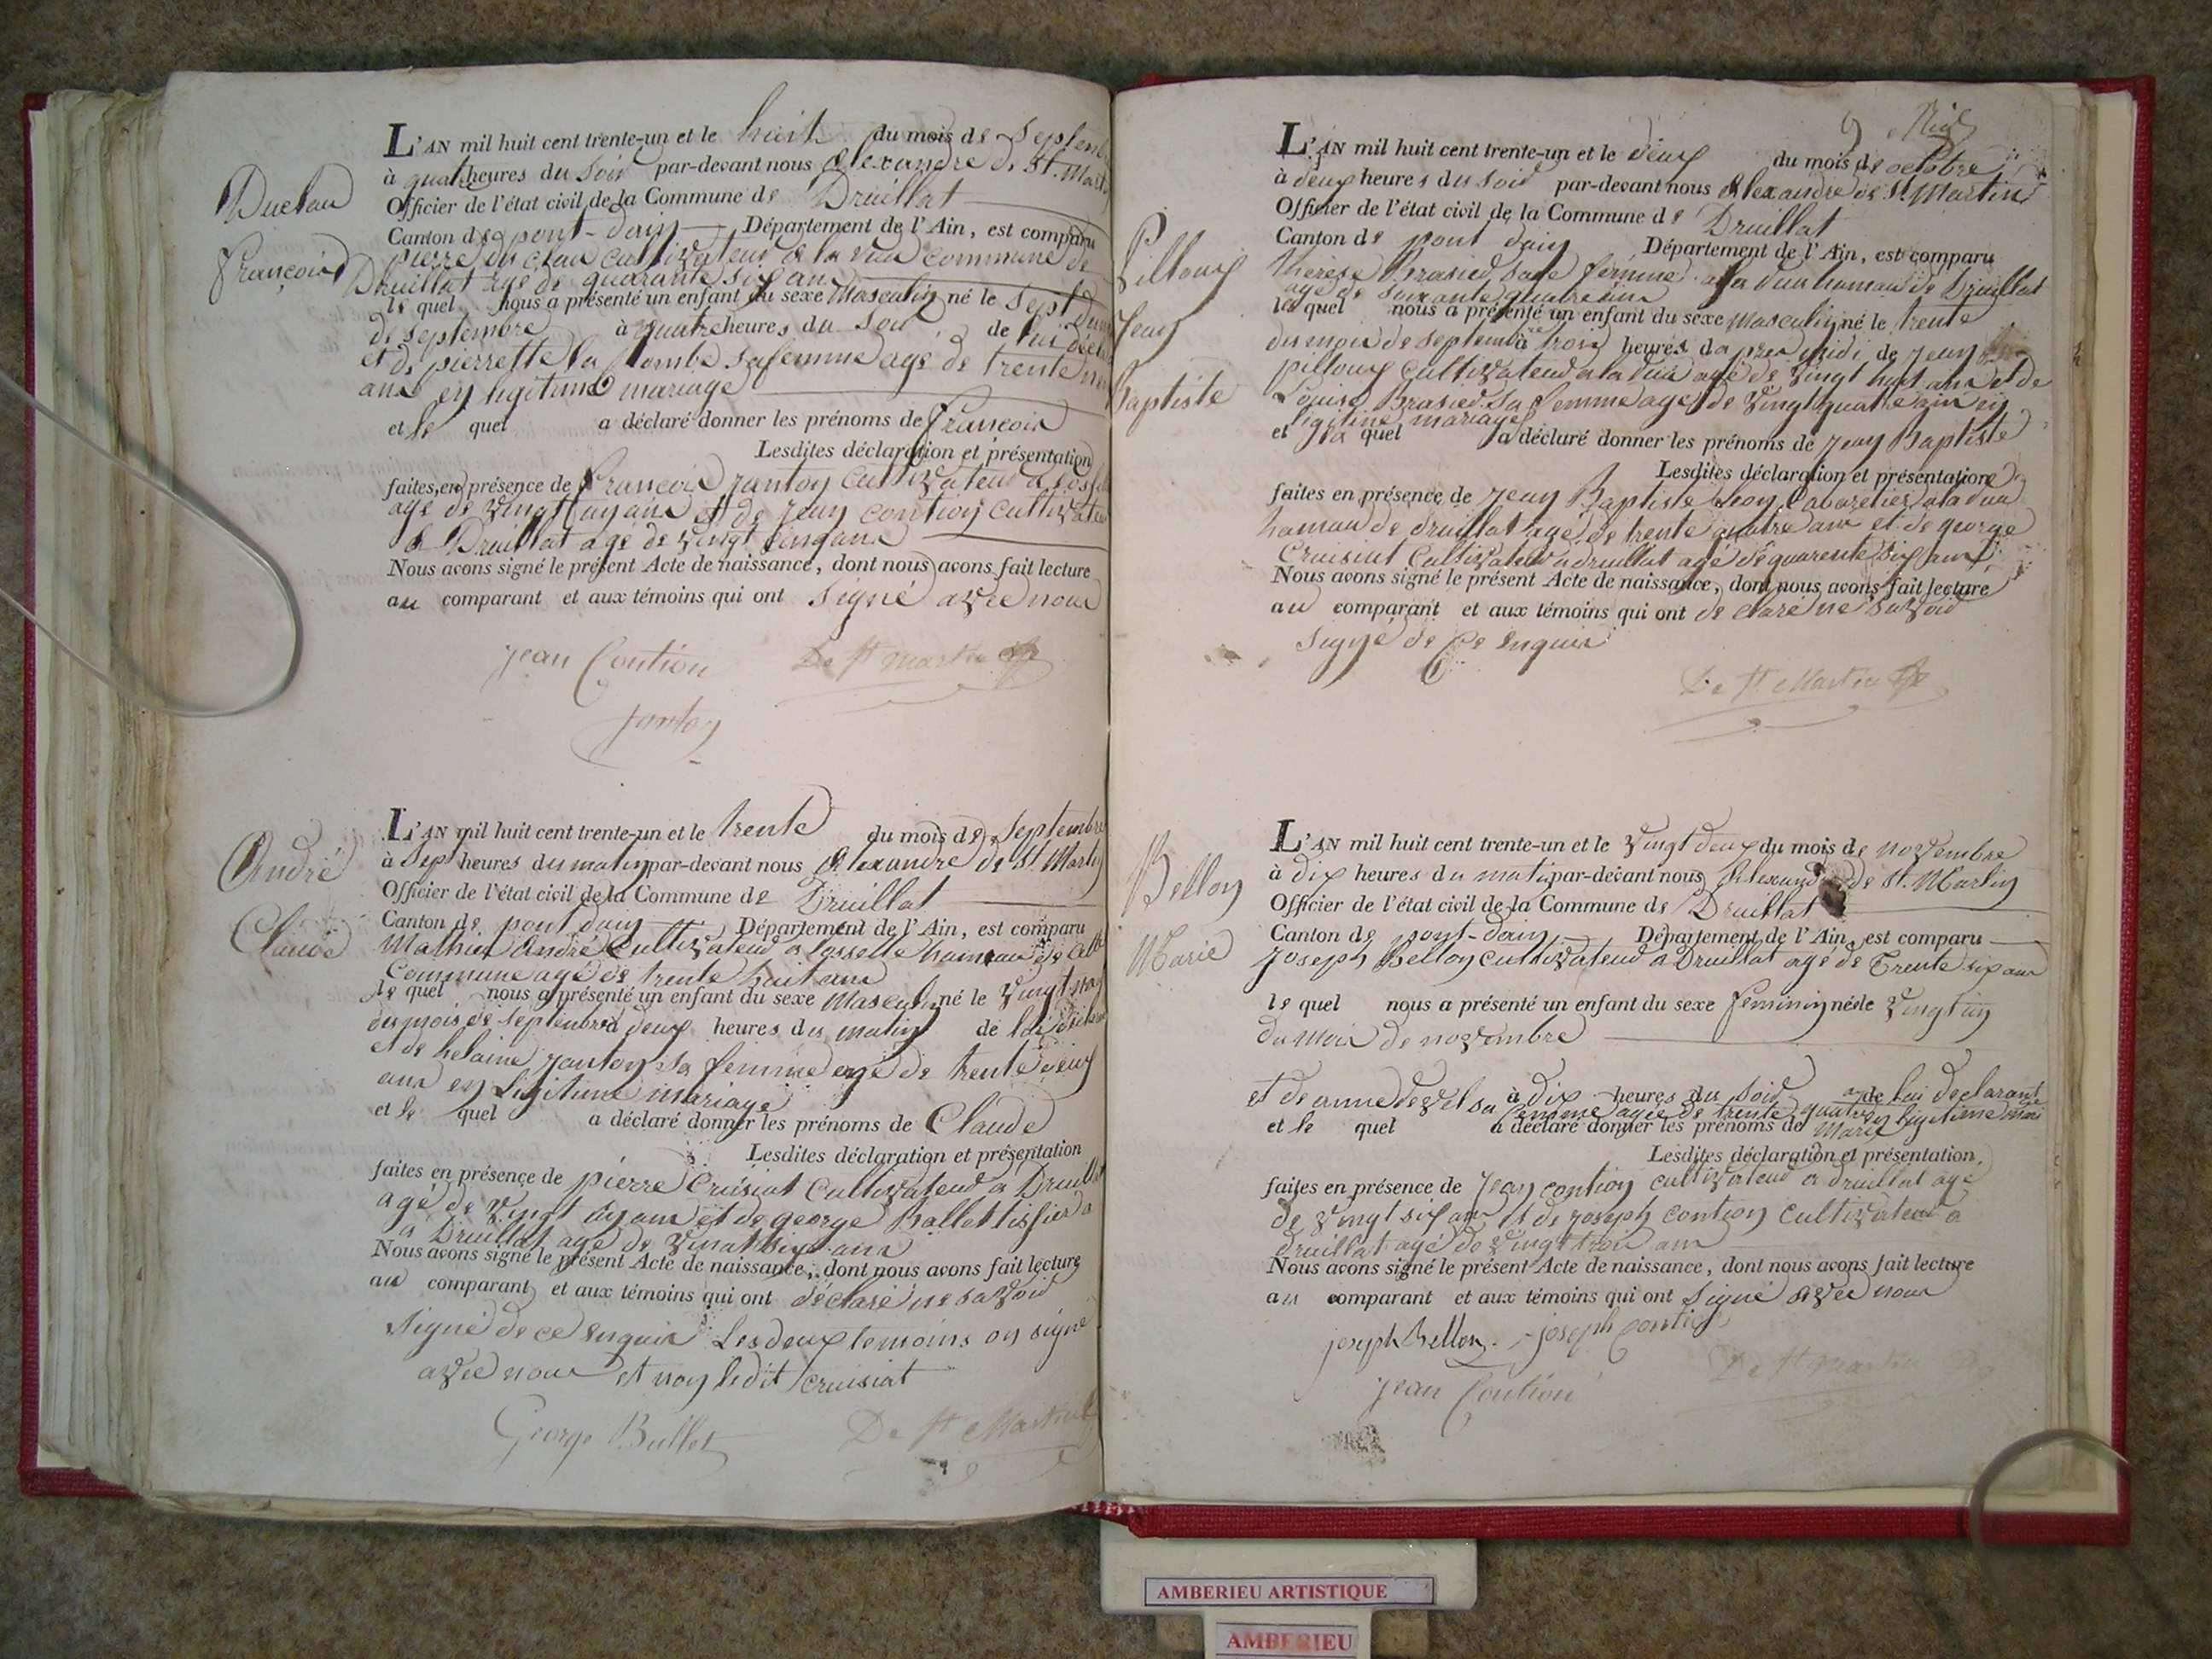 L'AN mil huit cent trente-un et le huit du mois de Septemb
à quatre heures du Soir par-devant nous Alexandre de St. Marti
Officier de l'état civil de la Commune de Druillat
Canton de pont-dain Département de l'Ain, est comparu
pierre du clau cultivateur a la rua commune de
Druillat age de quarante six ans
le quel nous a présenté un enfant du sexe Masculin né le Sept du
de septembre à quatre heures du Soir de lui
et de pierrette la tombe sa femme age de trente
ans en legitime mariage
et le quel a déclaré donner les prénoms de François
Lesdites déclaration et présentation
faites, en présence de François janton Cultivateur a
age de vingt un ans et de jean contion cultivate
a Druillat age de vingt cinq ans
Nous avons signé le présent Acte de naissance, dont nous avons fait lecture
au comparant et aux témoins qui ont signé avec nous
jean Contion De St martin
janton
Duclau
François
L'AN mil huit cent trente-un et le trente du mois de Septembre
à Sept heures du matin par-devant nous Alexandre de St. Martin
Officier de l'état civil de la Commune de Druillat
Canton de pont dain Département de l'Ain, est comparu
Mathieu André Cultivateur a losselle hameau de cette
Commune age de trente huit ans
le quel nous a présenté un enfant du sexe Masculin né le vingt
du mois de septembre à deux heures du matin de lui
et de helaine janton sa femme age de trente deux
ans en Ligitime mariage
et le quel a déclaré donner les prénoms de Claude
Lesdites déclaration et présentation
faites en présence de pierre Cruisiat Cultivateur a Druillat
agé de vingt un ans et de george Ballet tissier a
a Druillat agé de vingt six ans
Nous avons signé le présent Acte de naissance, dont nous avons fait lecture
au comparant et aux témoins qui ont déclaré ne savoir
signé de ce enquis Les deux temoins on signe
avec nous et non ledit cruisiat
George Ballet De St Martin
André
Claude
L'AN mil huit cent trente-un et le deux du mois de octobre
à deux heures du soir par-devant nous Alexandre de St Martin
Officier de l'état civil de la Commune de Druillat
Canton de pont dain Département de l'Ain, est comparu
therese Brasied sage femme a la rua hamau de Druillat
age de soixante quatre ans
la quel nous a présenté un enfant du sexe Masculin né le trente
du mois de septembre à trois heures da pres midi de jean
pilloux Cultivateur a la rua age de vingt huit ans et de
Louise Brasied sa femme age de vingt quatre ans en
ligitime mariage
et la quel a déclaré donner les prénoms de jean Baptiste
Lesdites déclaration et présentation
faites en présence de jean Baptiste Cabaretier a la rua
hamau de druillat age de trente quatre ans et de george
Cruisiat Cultivateur a druillat agé de quarente six ans
Nous avons signé le présent Acte de naissance, dont nous avons fait lecture
au comparant et aux témoins qui ont declaré ne savoir
signé de ce enquis
De St Martin
Pilloux
Jean
Baptiste
L'AN mil huit cent trente-un et le vingt deux du mois de novembre
à dix heures du matin par-devant nous Alexandre de St. Martin
Officier de l'état civil de la Commune de Druillat
Canton de pont-dain Département de l'Ain, est comparu
joseph Bellon cultivateur a Druillat age de Trente six ans
le quel nous a présenté un enfant du sexe feminin née le vingt un
du Mois de novembre
à dix heures du soir de lui declarant
et de anne devel sa femme agée de trente quatre en ligitime mari
et le quel a déclaré donner les prénoms de Marie
Lesdites déclaration et présentation
faites en présence de Jean contion cultivateur a druillat age
de vingt six ans et de joseph contion Cultivateur a
druillat agé de vingt trois ans
Nous avons signé le présent Acte de naissance, dont nous avons fait lecture
au comparant et aux témoins qui ont signé avec nous
joseph Bellon. joseph Contion
jean Contion De St martin
Bellon
Marie
AMBERIEU ARTISTIQUE
AMBERIEU